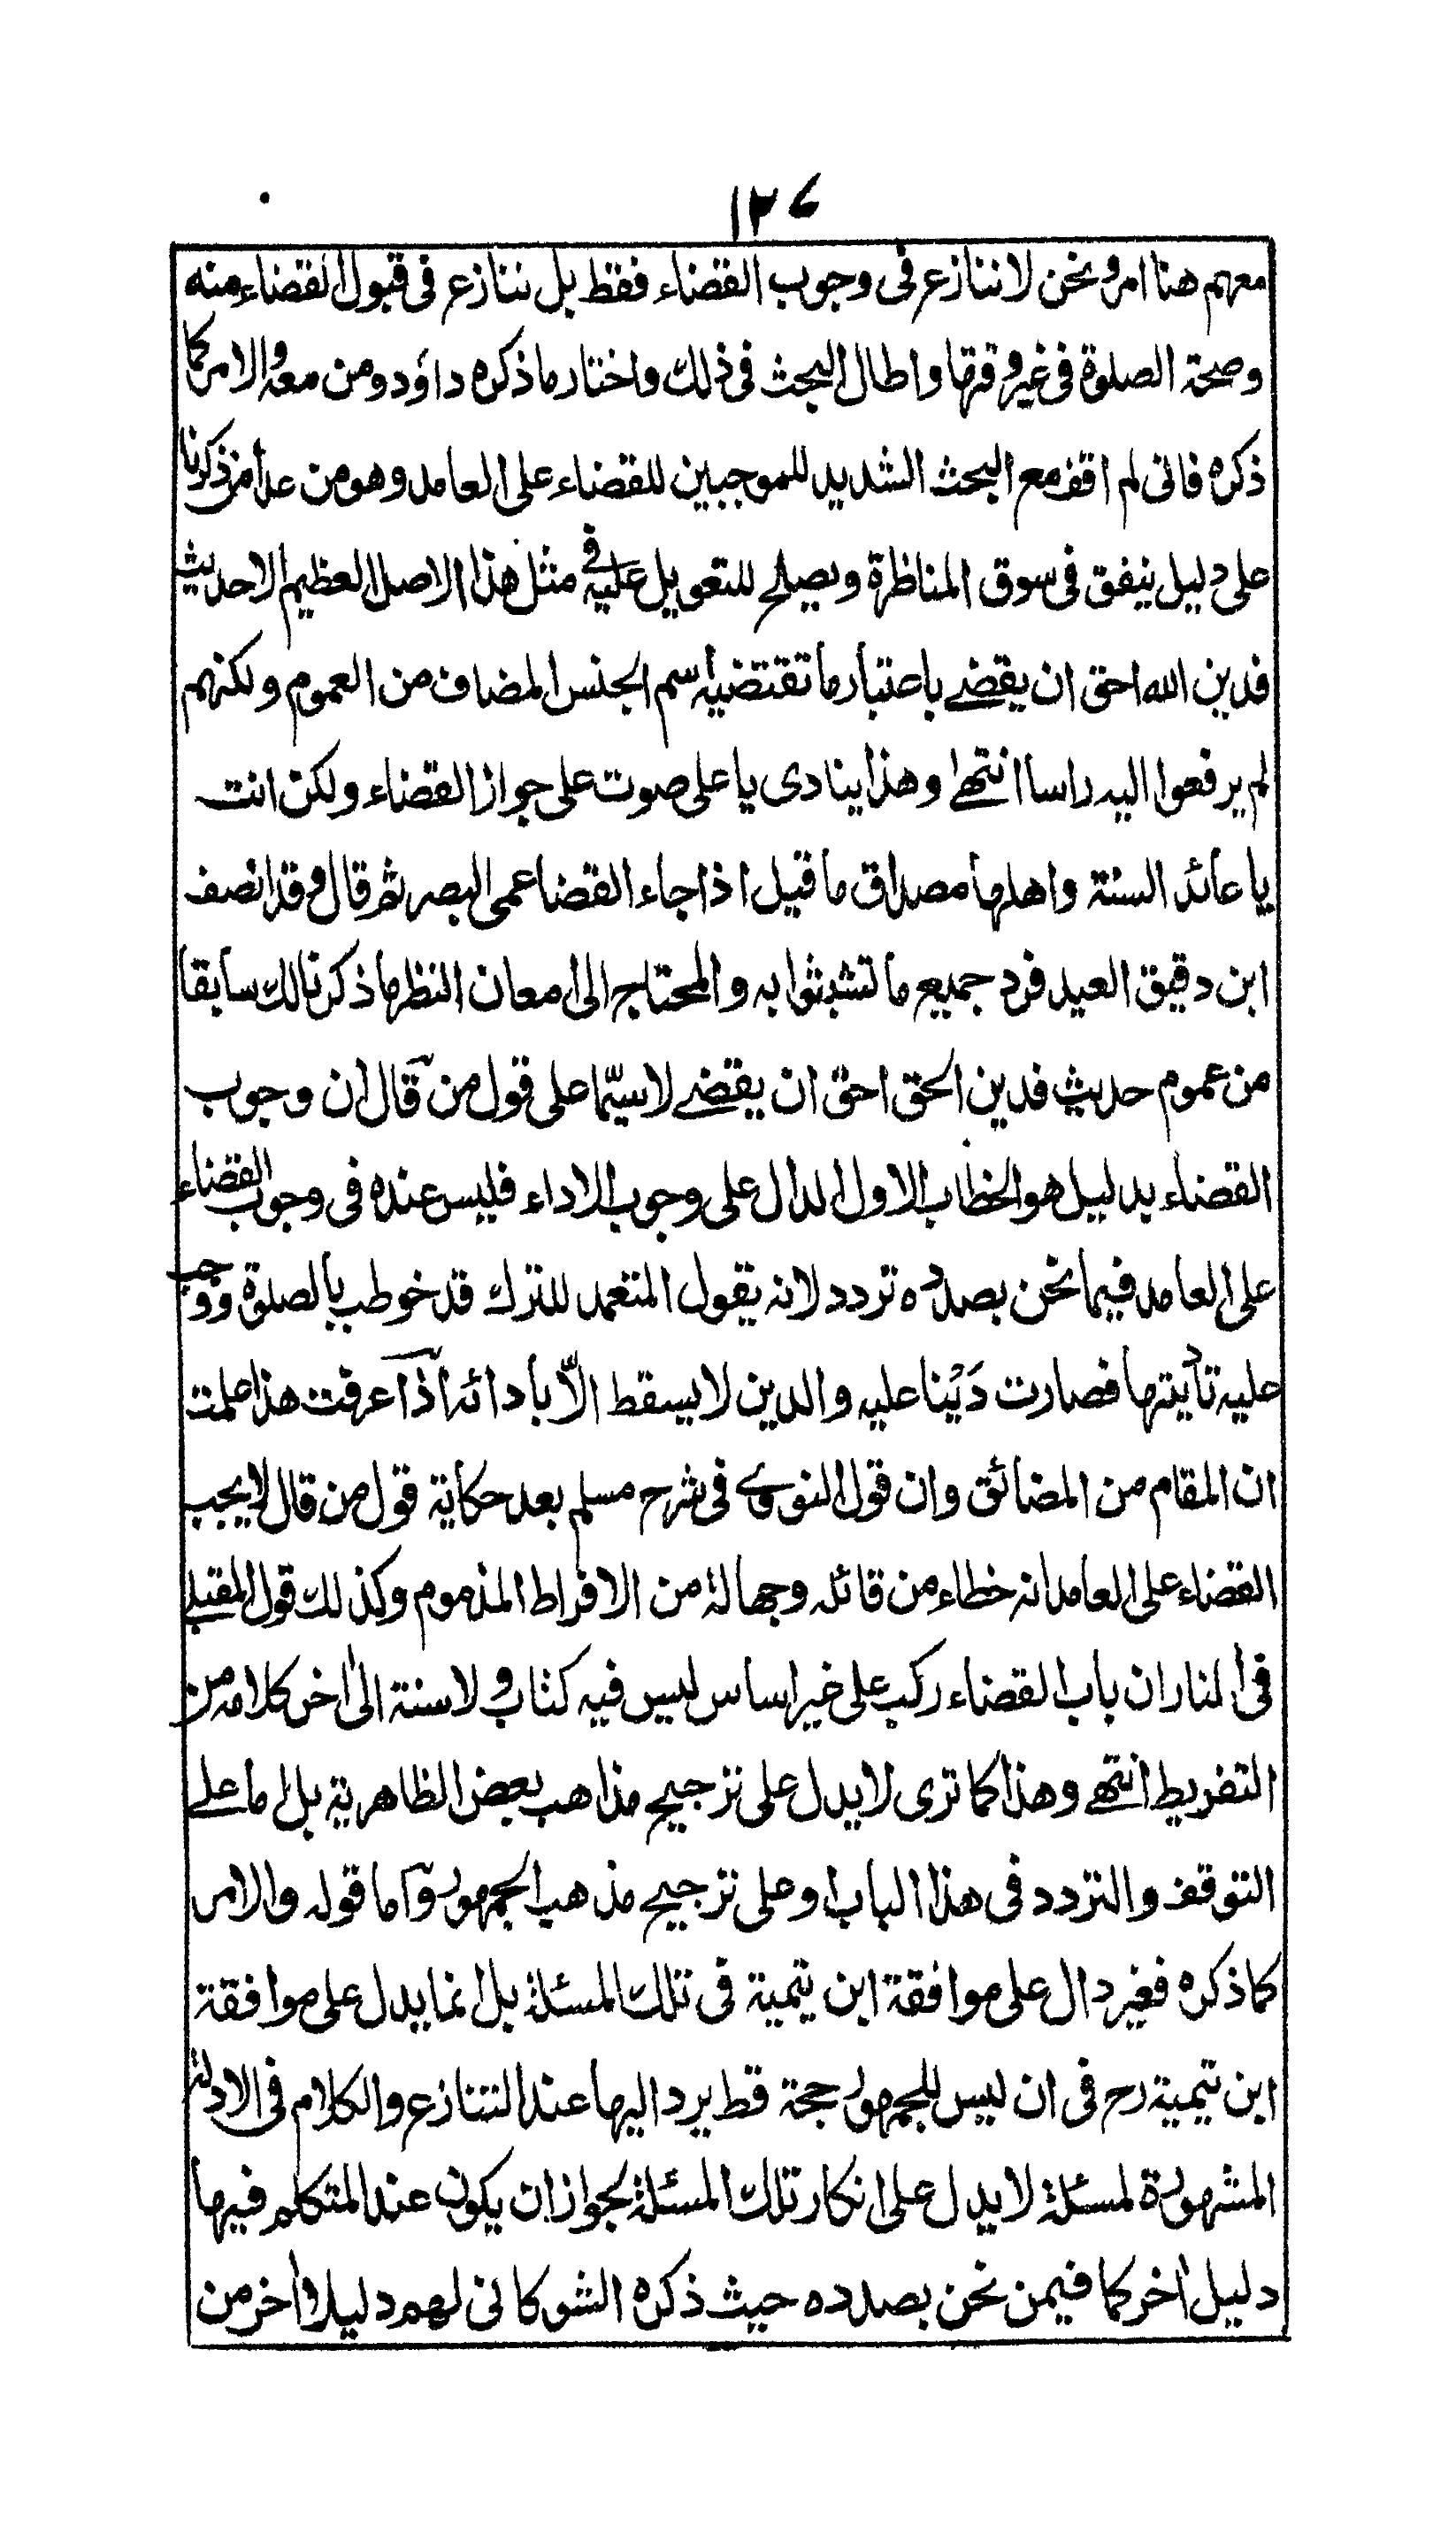 ١٢٤
معهم هنا امر ونحن لا ننازع فى وجوب القضاء فقط بل ننازع فى قبول القضاء منه
وصحة الصلوة فى غير وقتها واطال البحث فى ذلك واختار ما ذكره داوَد ومن معه والامر كما
ذكره فانى لم اقف مع البحث الشديد للموجبين للقضاء على العامد وهو من عدا من ذكرنا
على دليل ينفق فى سوق المناظرة ويصلح للتعويل عليه فى مثل هذا الاصل العظيم الا حديث
فدين الله احق ان يقضے باعتبار ما تقتضيه اسم الجنس المضاف من العموم ولكنهم
لم يرفعوا اليه راسا انتهے وهذا ينادى باعلى صوت على جواز القضاء ولكن انت
يا عائد السنة واهلها مصداق ما قيل اذا جاء القضا عمى البصر ثم قال وقد انصف
ابن دقيق العيد فرد جميع ما تشبثوا به والمحتاج الى امعان النظر ما ذكرنا لك سابقا
من عموم حديث فدين الحق احق ان يقضے لا سيّما على قول من قال ان وجوب
القضاء بدليل هو الخطاب الاول الدال على وجوب الاداء فليس عنده فى وجوب القضاء
على العامد فيما نحن بصدده تردد لانه يقول المتعمد للترك قد خوطب بالصلوة ووجب
عليه تاديتها فصارت دَيْنا عليه والدين لا يسقط الّا بأدائه اذا عرفت هذا علمت
ان المقام من المضائق وان قول النووے فى شرح مسلم بعد حكاية قول من قال لا يجب
القضاء على العامد انه خطاء من قائله وجهالة من الافراط المذموم وكذلك قول المقبلے
فى المنار ان باب القضاء ركب على غير اساس ليس فيه كتاب ولا سنة الى اٰخر كلامه من
التفريط انتهے وهذا كما ترى لا يدل على ترجيح مذاهب بعض الظاهرية بل اما علے
التوقف والتردد فى هذا الباب او على ترجيح مذهب الجمهور واما قوله والامر
كما ذكره فغير دال على موافقة ابن تيمية فى تلك المسئلة بل انما يدل على موافقة
ابن تيمية رح فى ان ليس للجمهور حجة قط يرد اليها عند التنازع والكلام فى الادلة
المشهورة لمسئلة لا يدل على انكار تلك المسئلة لجواز ان يكون عند المتكلم فيها
دليل اٰخر كما فيمن نحن بصدده حيث ذكره الشوكانى لهم دليلا اٰخر من